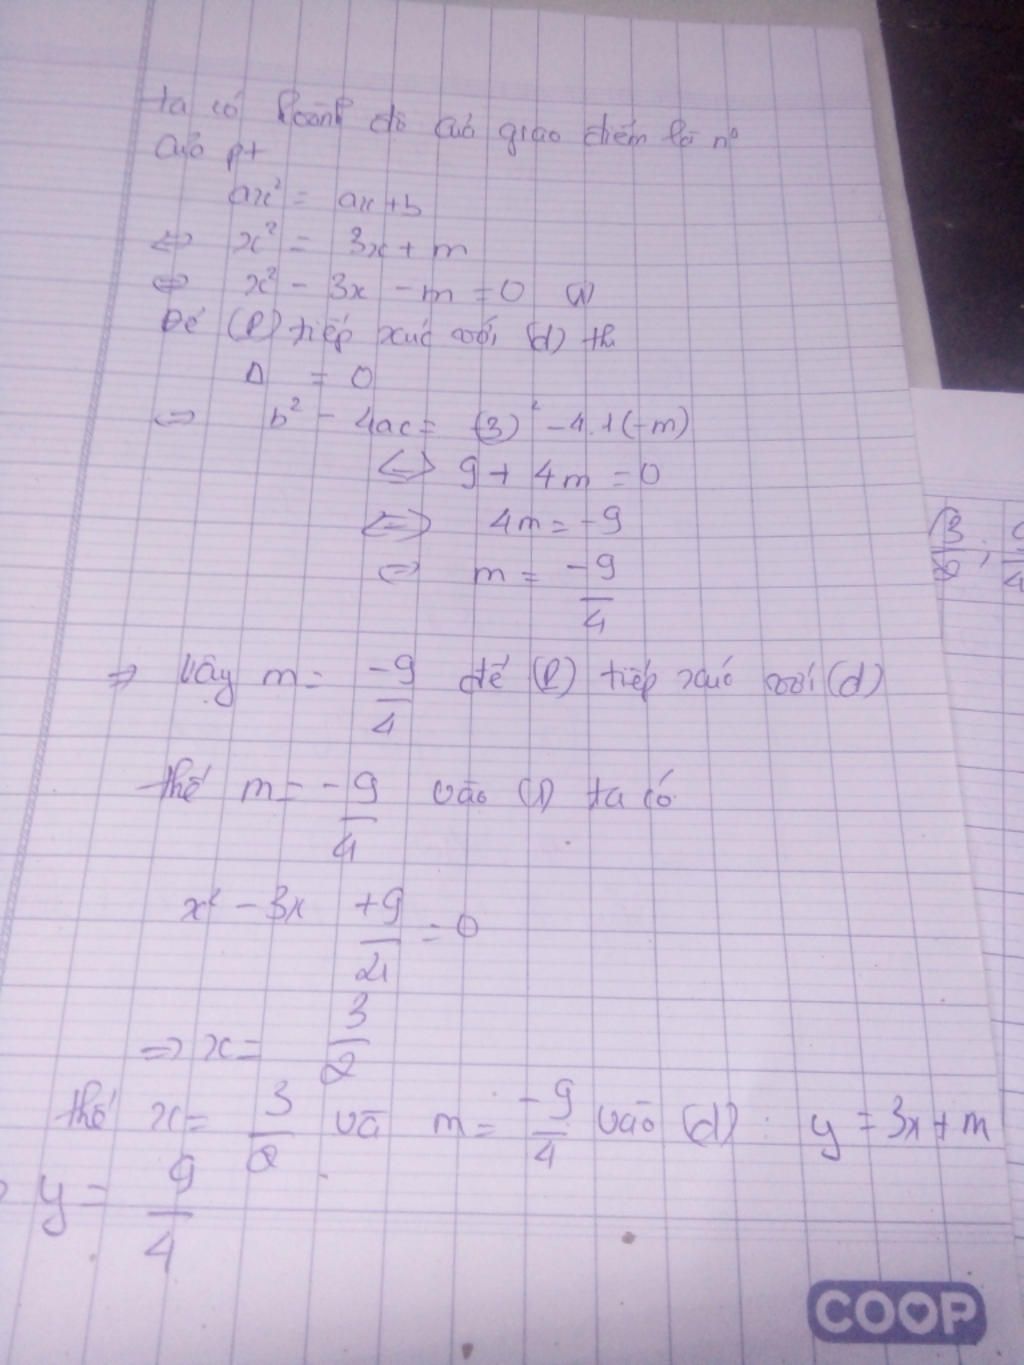 ta có hoành độ của giao điểm là n⁰
của pt
ax² = ax + b
⇔ x² = 3x + m
⇔ x² - 3x - m = 0 (1)
Để (P) tiếp xúc với (d) th
Δ = 0
⇔ b² - 4ac = (3)² - 4.1(-m)
⇔ 9 + 4m = 0
⇔ 4m = -9
⇔ m = -9/4
⇒ Vậy m = -9/4 để (P) tiếp xúc với (d)
thế m = -9/4 vào (1) ta có
x² - 3x + 9/4 = 0
⇒ x = 3/2
thế x = 3/2 và m = -9/4 vào (d) : y = 3x + m
y = 9/4
COOP